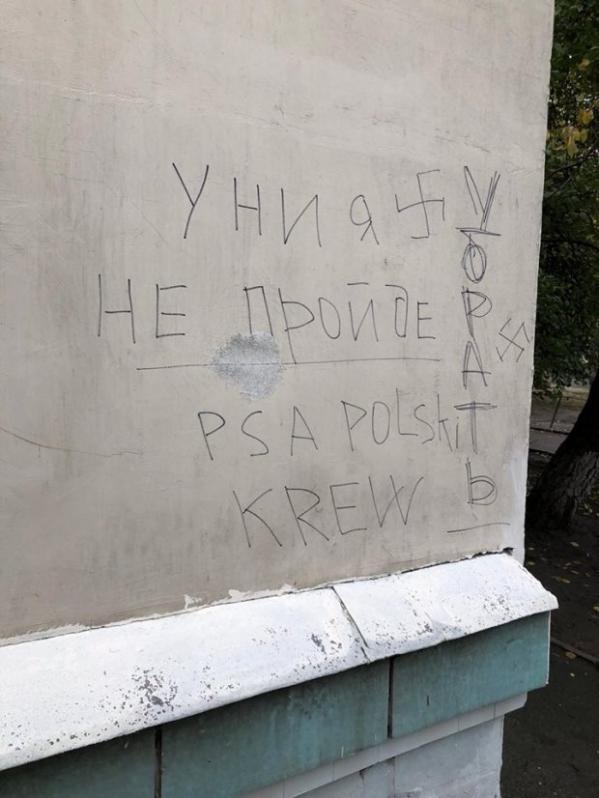 УНИЯ
НЕ ПРОЙДЕ
PSA POLSKI
KREW
УБРАТЬ